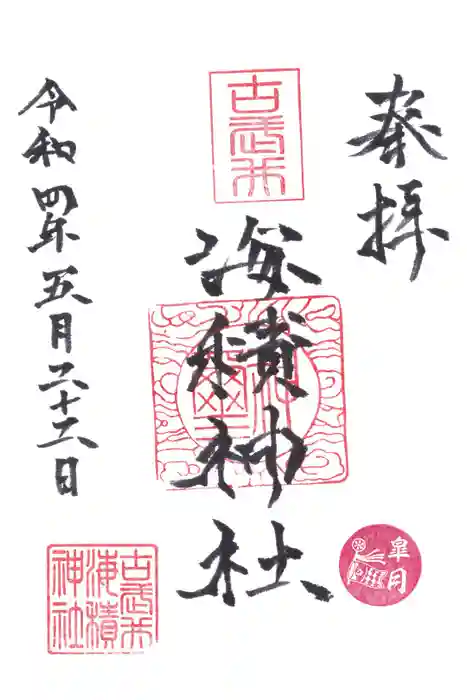 奉拝
古武井
海積神社
令和四年五月二十二日
皐月
古武井
海積
神社